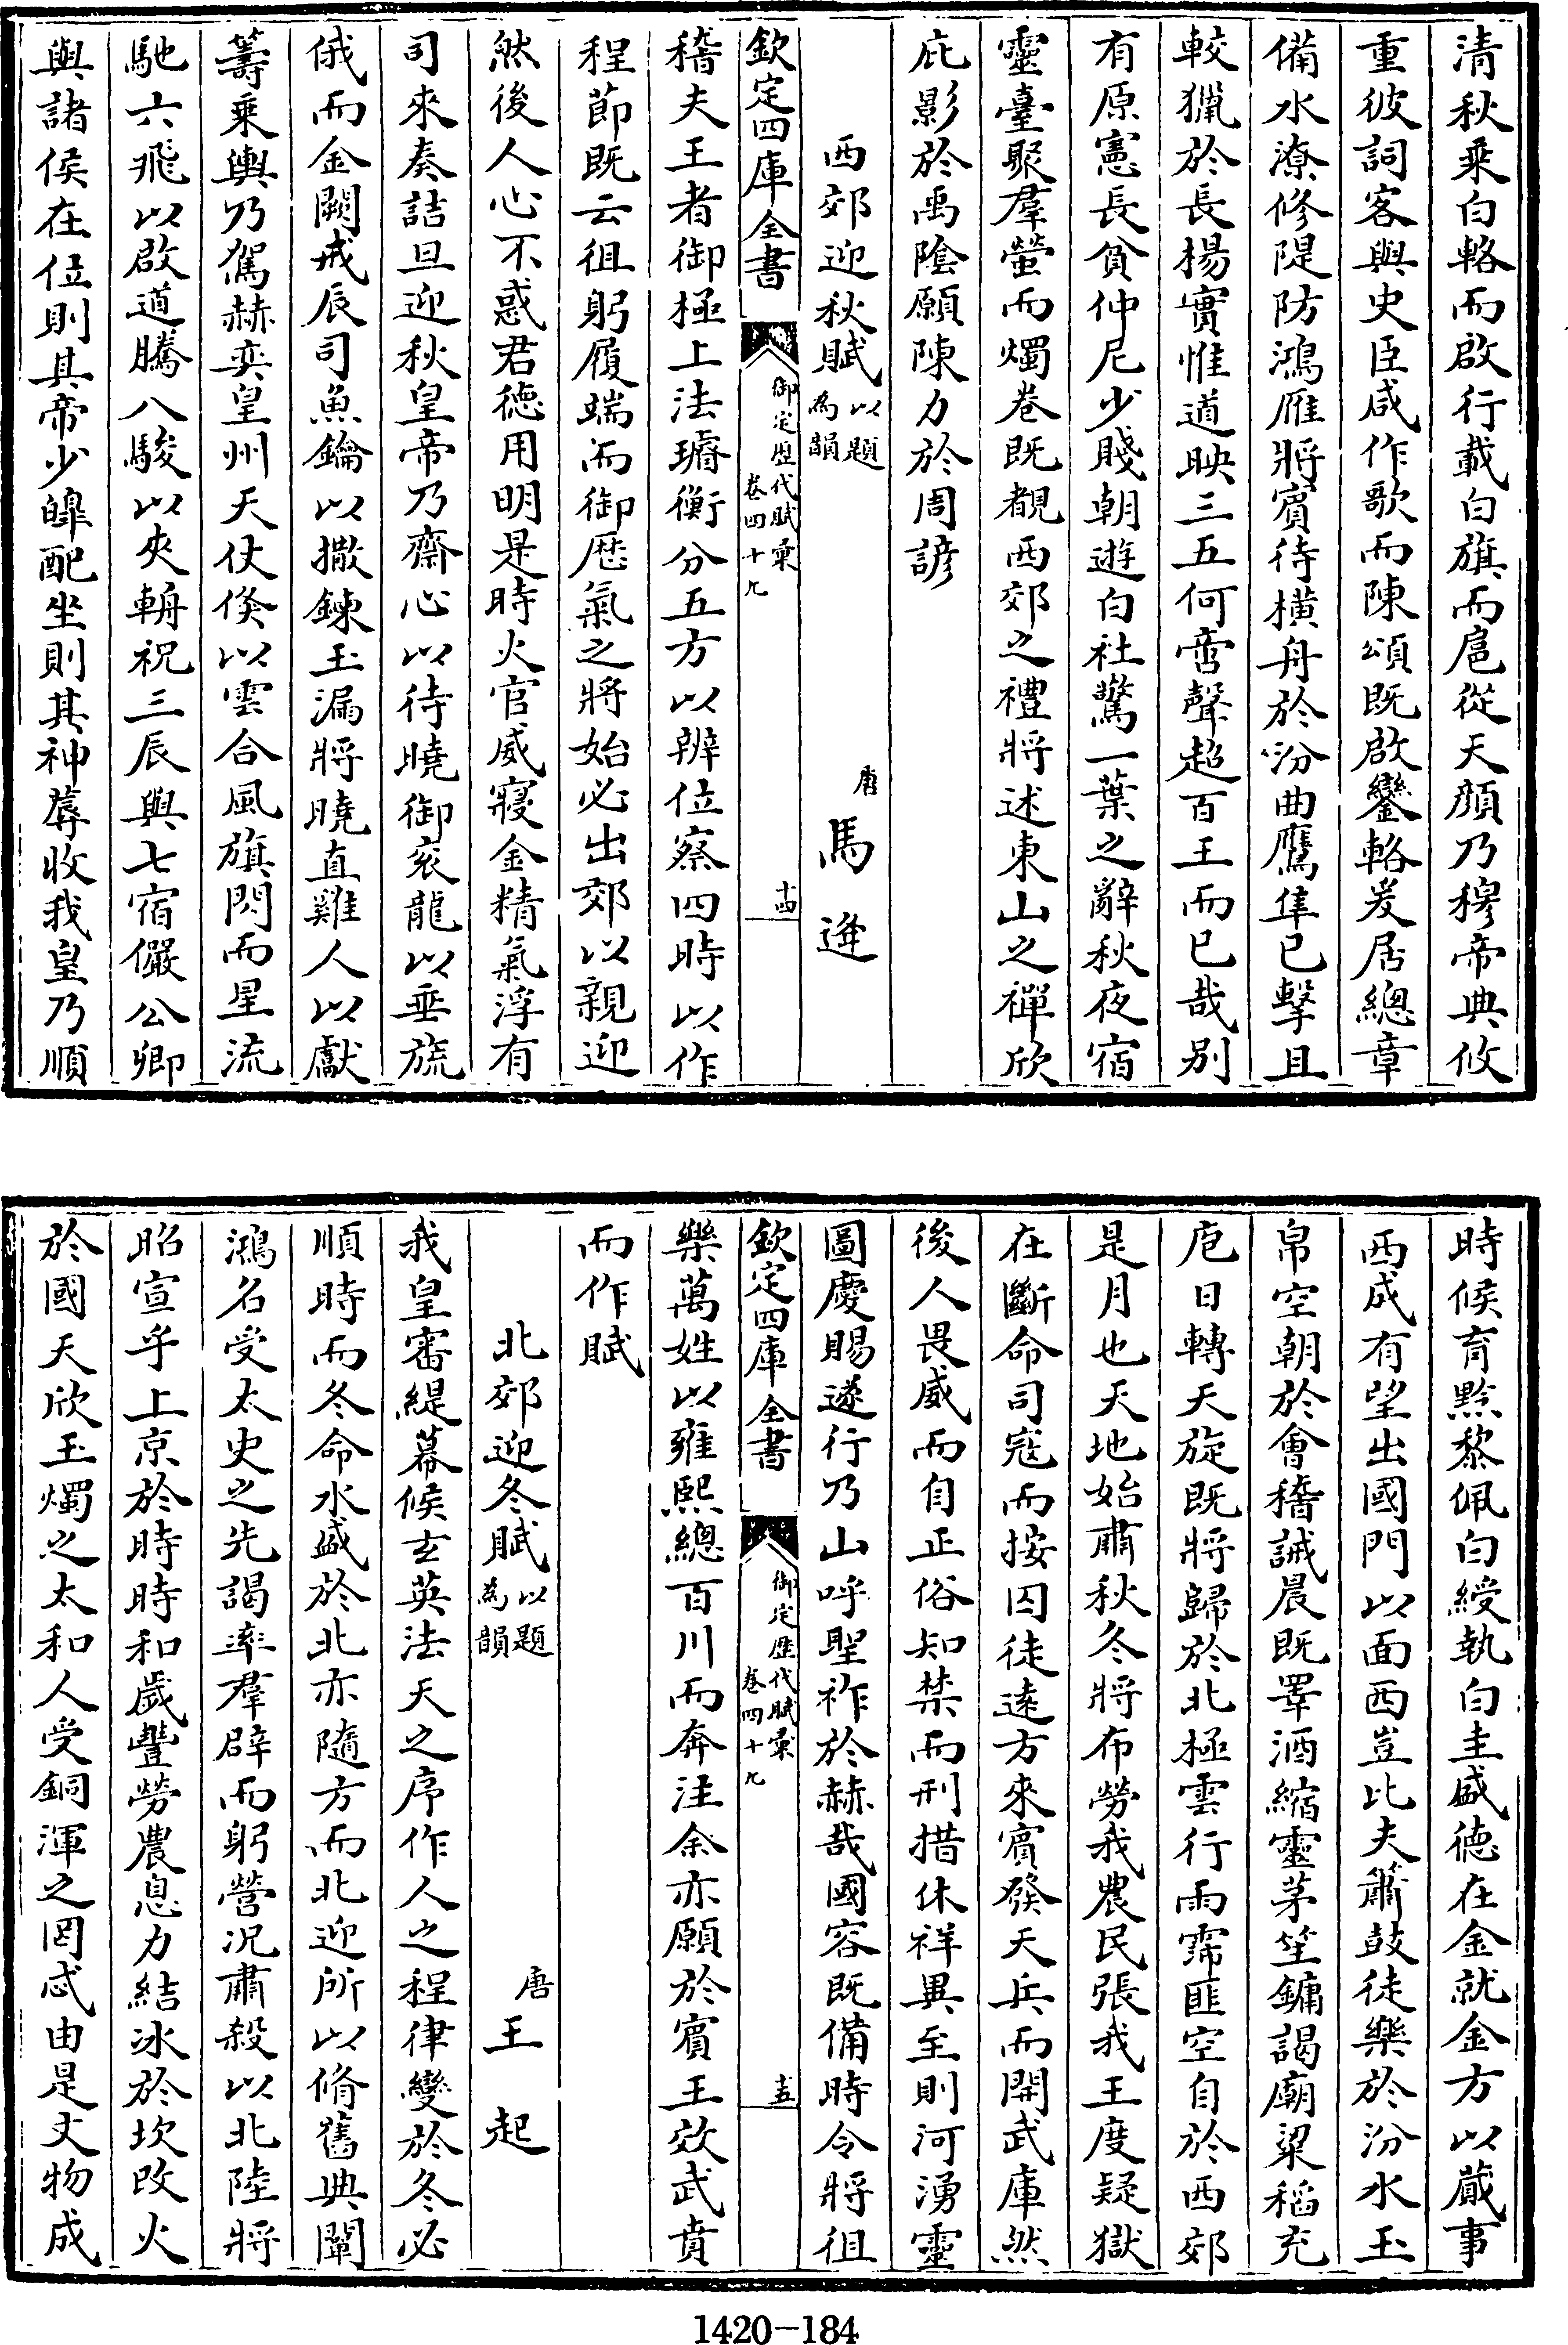 清秋乘白輅而啟行載白旗而扈從天顔乃穆帝典攸
重彼詞客與史臣咸作歌而陳頌既啟鑾輅爰居總章
備水潦修隄防鴻雁將賓待横舟於汾曲鷹隼已擊且
較獵於長楊實惟道映三五何啻聲超百王而已哉别
有原憲長貧仲尼少賤朝遊白社驚一葉之辭秋夜宿
靈臺聚羣螢而燭卷既覩西郊之禮將述東山之禪欣
庇影於禹陰願陳力於周諺
西郊迎秋賦以題為韻
唐馬逄
欽定四庫全書
御定歴代賦彙
卷四十九
十四
稽夫王者御極上法璿衡分五方以辨位察四時以作
程節既云徂躬履端而御歴氣之將始必出郊以親迎
然後人心不惑君德用明是時火官威寢金精氣浮有
司來奏詰旦迎秋皇帝乃齋心以待曉御衮龍以垂旒
俄而金闕戒辰司魚鑰以撤鍊玉漏將曉直雞人以獻
籌乘輿乃駕赫奕皇州天仗倏以雲合風旗閃而星流
馳六飛以啟道騰八駿以夾輈祝三辰與七宿儼公卿
與諸侯在位則其帝少皥配坐則其神蓐收我皇乃順
時候育黔黎佩白綬執白圭盛德在金就金方以蕆事
西成有望出國門以面西豈比夫簫鼓徒樂於汾水玉
帛空朝於會稽誡晨既畢酒縮靈茅笙鏞謁廟粢稻充
庖日轉天旋既將歸於北極雲行雨霈匪空自於西郊
是月也天地始肅秋冬將布勞我農民張我王度疑獄
在斷命司寇而按囚徒遠方來賓發天兵而開武庫然
後人畏威而自正俗知禁而刑措休祥畢至則河湧靈
圖慶賜遂行乃山呼聖祚於赫哉國容既備時令將徂
欽定四庫全書
御定歴代賦彙
卷四十九
十五
樂萬姓以雍熙總百川而奔注余亦願於賓王效武賁
而作賦
北郊迎冬賦以題為韻
唐王起
我皇審緹幕候玄英法天之序作人之程律變於冬必
順時而冬命水盛於北亦隨方而北迎所以脩舊典闡
鴻名受太史之先謁率羣辟而躬營況肅殺以北陸將
昭宣乎上京於時時和歲豐勞農息力結冰於坎改火
於國天欣玉燭之太和人受銅渾之罔忒由是文物成
1420-184